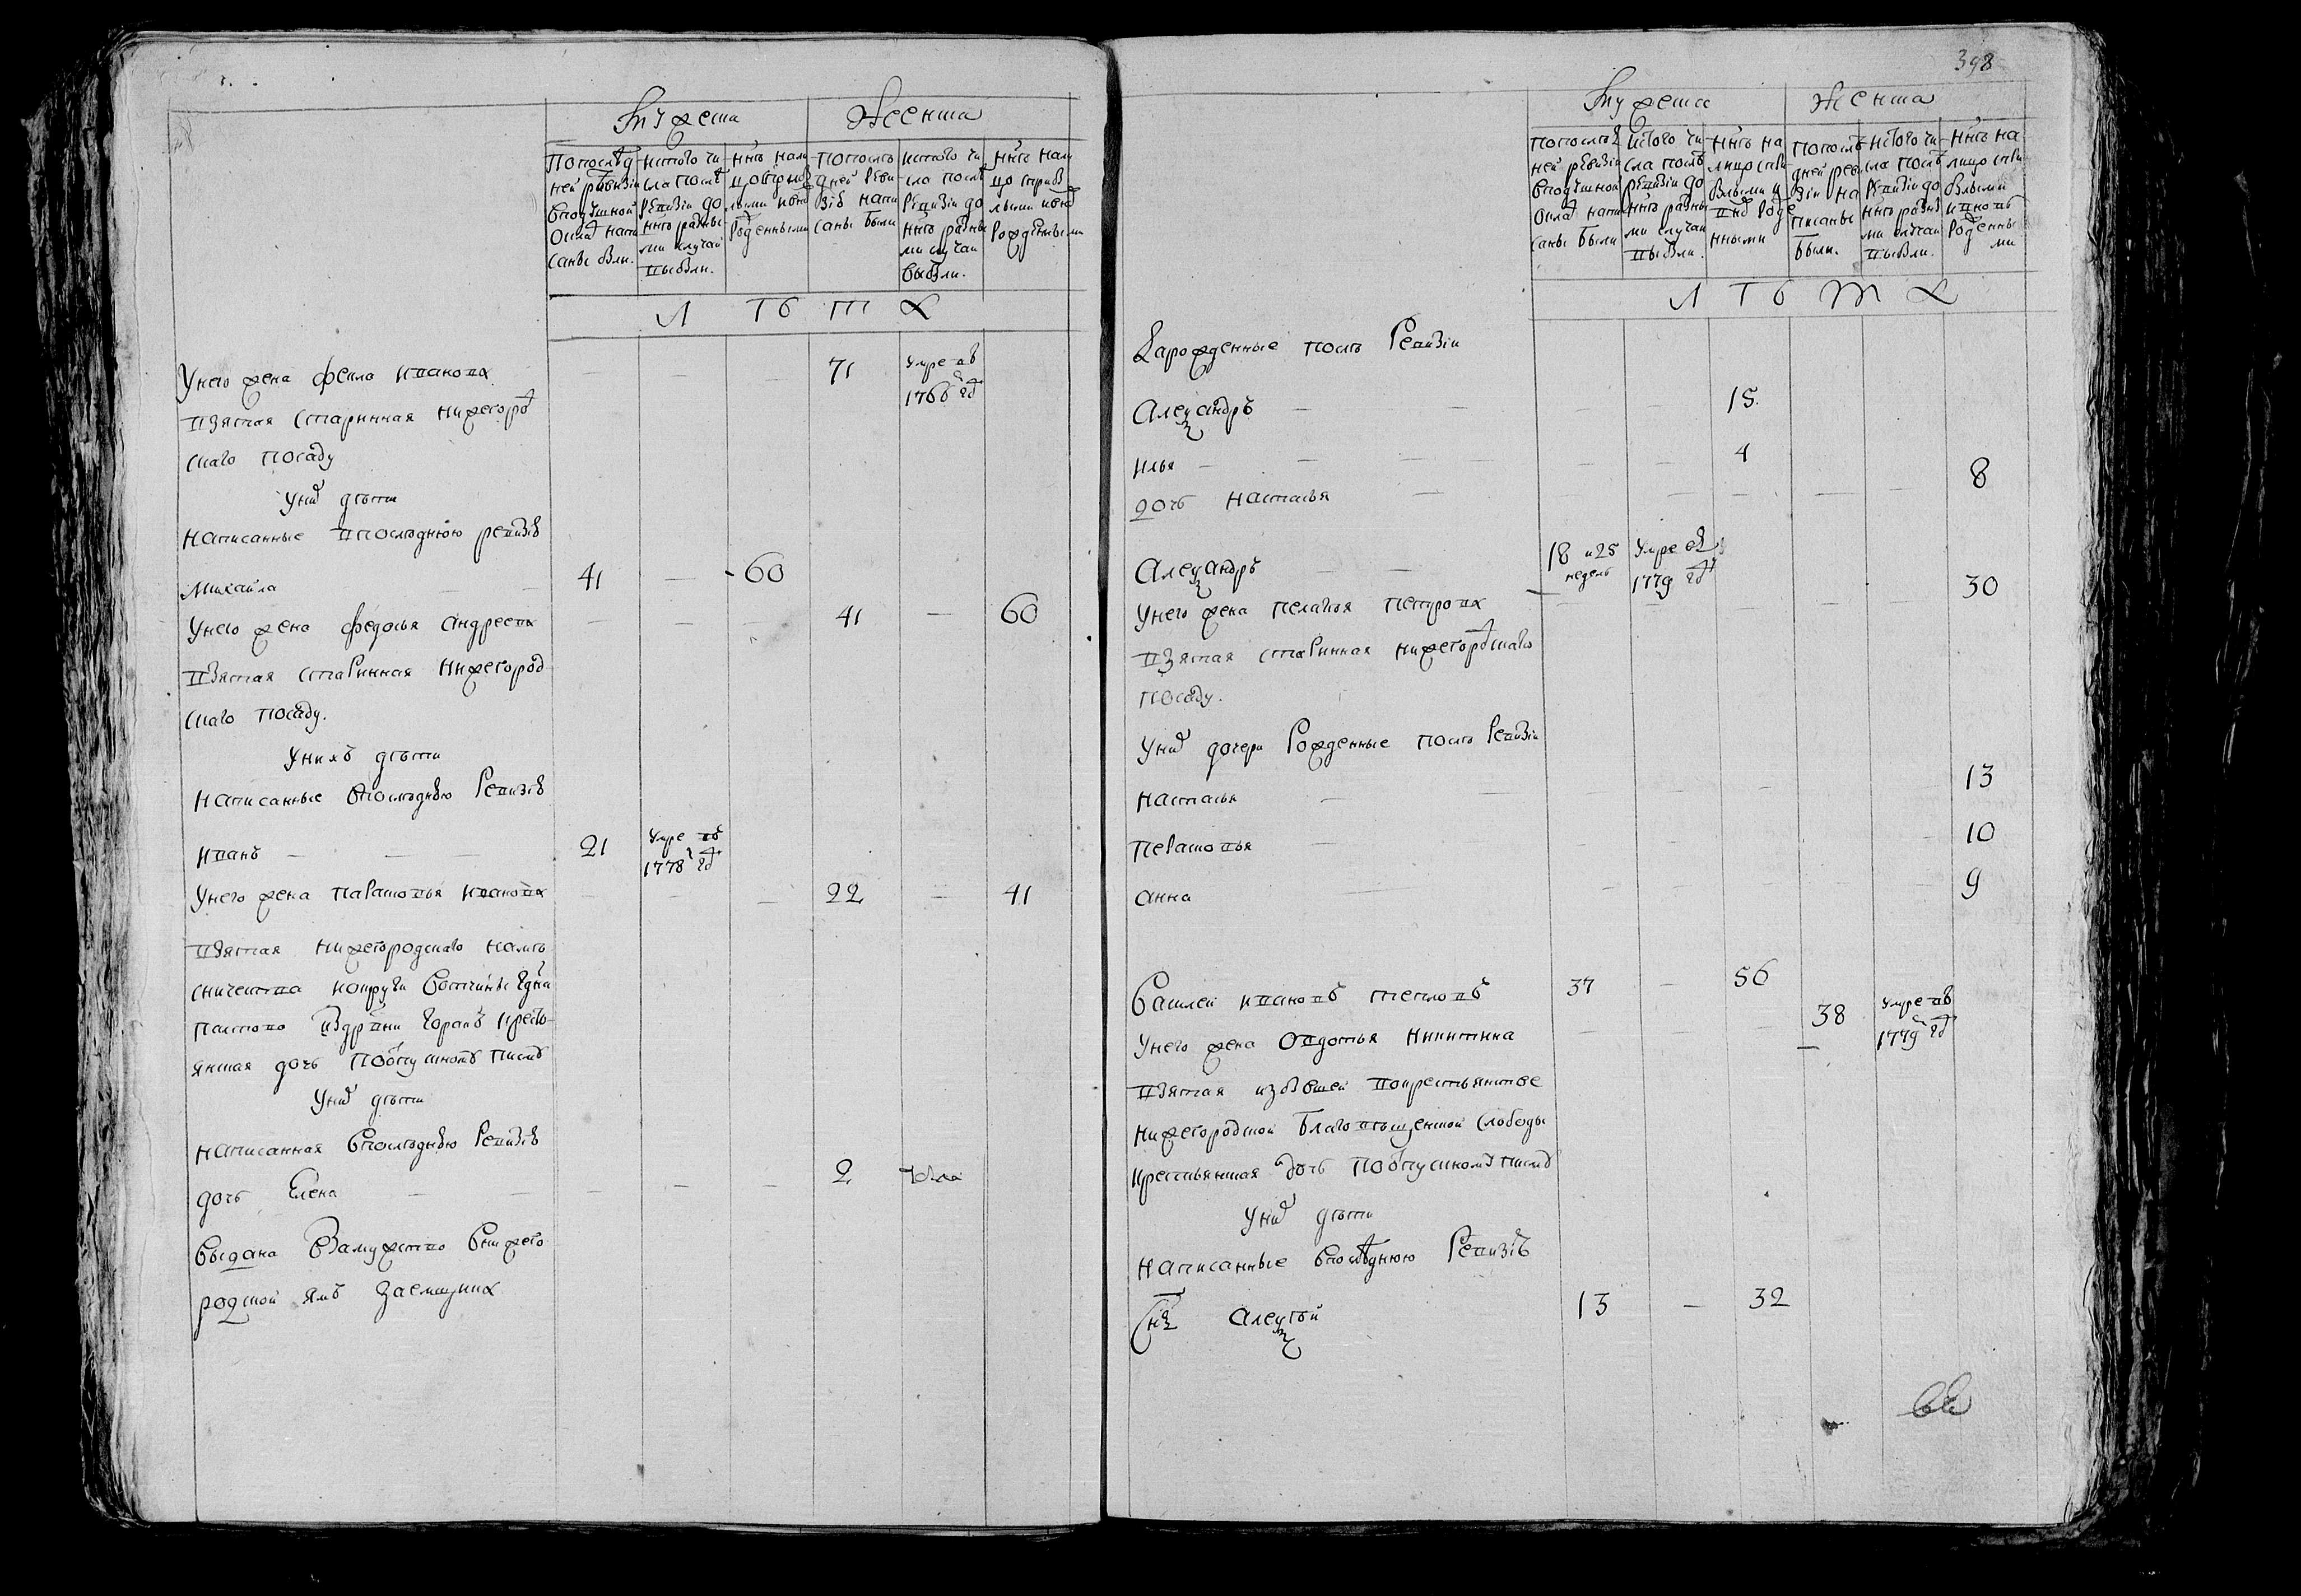 Мужеска
Женска
Попослѣд
ней ревизіи
вподушной
окладъ напи
саны были.
истого чи
сла послѣ
ревизіи до
нынѣ разны
ми случаи
выбыли.
нынѣ нали
рожденными
попослѣ
дней реви
зіи напи
саны были
истого чи
сла послѣ
ревизіи до
нынѣ разны
ми случаи
выбыли.
нынѣ нали
цо сприбы
лыми и вновь
рожденными
Лѣта
Унего жена Фекла Иванова 71 умре въ
1766м году
взятая старинная нижегород
скаго посаду
Унихъ дѣти
написанные впоследнюю ревизію
Михайла 41 — 60
Унего жена Федосья Андреева 41 — 60
взятая старинная нижегород
скаго посаду.
Унихъ дѣти
написанные впоследнюю ревизію
Иванъ 21 умре въ
1778м году
Унего жена Парасковья Иванова 22 — 41
взятая нижегородскаго намѣ
сничества
кресть
янская дочь поотпускному писму
Унихъ дѣти
написанная впоследнюю ревизію
дочь Елена 2
выдана взамужство внижего
родской ямъ
398
Мужеска
Женска
попослѣд
ней ревизіи
вподушной
окладъ напи
саны были
истого чи
сла послѣ
ревизіи до
нынѣ разны
ми случаи
выбыли.
нынѣ на
лицо спри
былыми и
вновь рожде
нными
попослѣ
дней реви
зіи на
писаны
были.
истого чи
сла послѣ
ревизіи до
нынѣ разны
ми случаи
выбыли.
нынѣ на
лицо спри
былыми
и вновь
рожденны
ми
Лѣта
Зарожденные послѣ ревизіи
Александръ — — — 15
Илья — — — — 4
дочь Настасья — — — — 8
Александръ 18 и 25
недель умре въ
1779 году
Унего жена Пелагея Петрова 30
взятая старинная нижегородскаго
посаду.
Унихъ дочери рожденные послѣ ревизіи
Настасья — — 13
Парасковья — 10
Анна — 9
Василей Ивановъ Тепловъ 37 — 56
Унего жена Овдотья Никитина 38 умре въ
1779м году
взятая избывшей вокрестьянстве
нижегородской Благовѣщенской слободы
крестьянская дочь поотпускному писму
Унихъ дѣти
написанные впослѣднюю ревизію
Сынъ Алексѣй 13 — 32